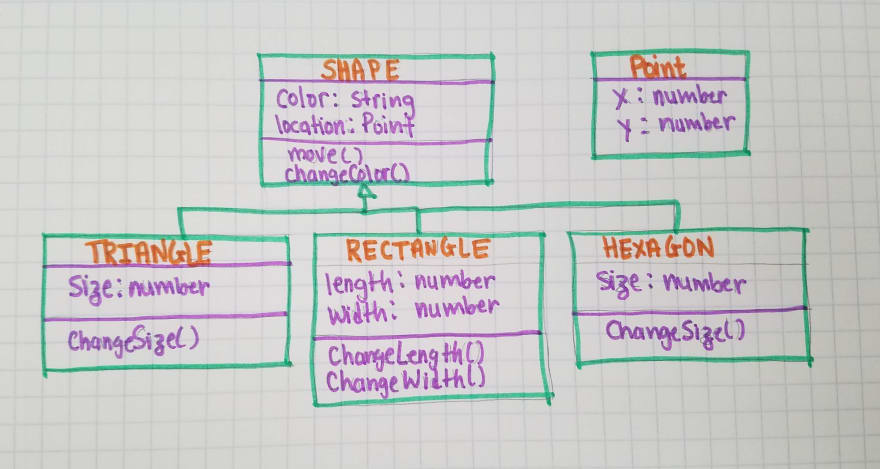 SHAPE
Color: string
location: Point
move()
changeColor()
Point
x: number
y: number
TRIANGLE
Size: number
ChangeSize()
RECTANGLE
length: number
width: number
ChangeLength()
ChangeWidth()
HEXAGON
Size: number
ChangeSize()